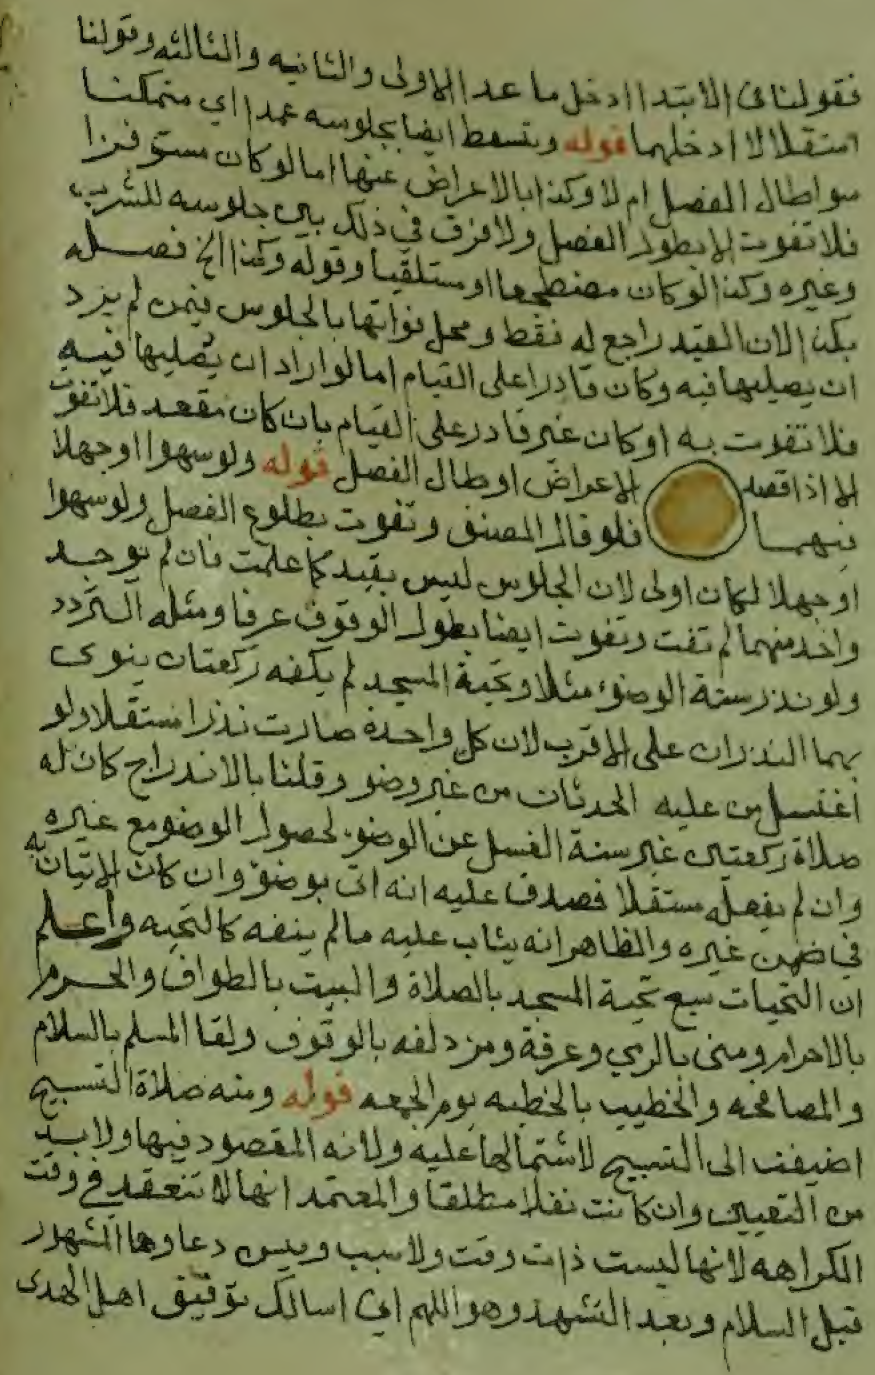 فقولنا في الابتدا ادخل ما عدا الاولى والثانيه والثالثه وقولنا
استقلالا ادخلهما قوله وتسقط ايضا بجلوسه عمدا اي متمكنا
سواطال الفصل ام لا وكذا بالاعراض عنها اما لو كان مستوفزا
فلا تفوت الا بطول الفصل ولا فرق في ذلك بين جلوسه للشرب
وغيره وكذا لو كان مضطجعا او مستلقيا وقوله وكذا الخ فصله
بكذا لان القيد راجع له فقط ومحل فواتها بالجلوس فيمن لم يرد
ان يصليها فيه وكان قادرا على القيام اما لو اراد ان يصليها فيه
فلا تفوت به او كان غير قادر على القيام بان كان مقعد فلا تفوت
الا اذا قصد الاعراض او طال الفصل قوله ولو سهوا او جهلا
فيهما فلو قال المصنف وتفوت بطلوع الفصل ولو سهوا
او جهلا لكان اولى لان الجلوس ليس بقيد كما علمت فان لم يوجد
واحد منهما لم تفت وتفوت ايضا بطول الوقوف عرفا ومثله التردد
ولو نذر سنة الوضوء مثلا وتحية المسجد لم يكفه ركعتان ينوى
بهما النذران على الاقرب لان كل واحدة صارت نذرا مستقلا ولو
اغتسل من عليه الحدثان من غير وضو وقلنا بالاندراج كان له
صلاة ركعتين غير سنة الغسل عن الوضو لحصول الوضو مع غيره
وان لم يفعله مستقلا فصدق عليه انه اتى بوضوء وان كان الاتيان به
في ضمن غيره والظاهر انه يثاب عليه ما لم ينفه كالتحيه واعلم
ان التحيات سبع تحية المسجد بالصلاة والبيت بالطواف والحرم
بالاحرام ومنى بالرمي وعرفة ومزدلفه بالوقوف ولقا المسلم بالسلام
والمصافحه والخطيب بالخطبه يوم الجمعه قوله ومنه صلاة التسبيح
اضيفت الى التسبيح لاشتمالها عليه ولانه المقصود فيها ولا بد
من التعيين وان كانت نفلا مطلقا والمعتمد انها لا تنعقد في وقت
الكراهه لانها ليست ذات وقت ولا سبب ويسن دعاوها المشهور
قبل السلام وبعد التشهد وهو اللهم اني اسالك توفيق اهل الهدى